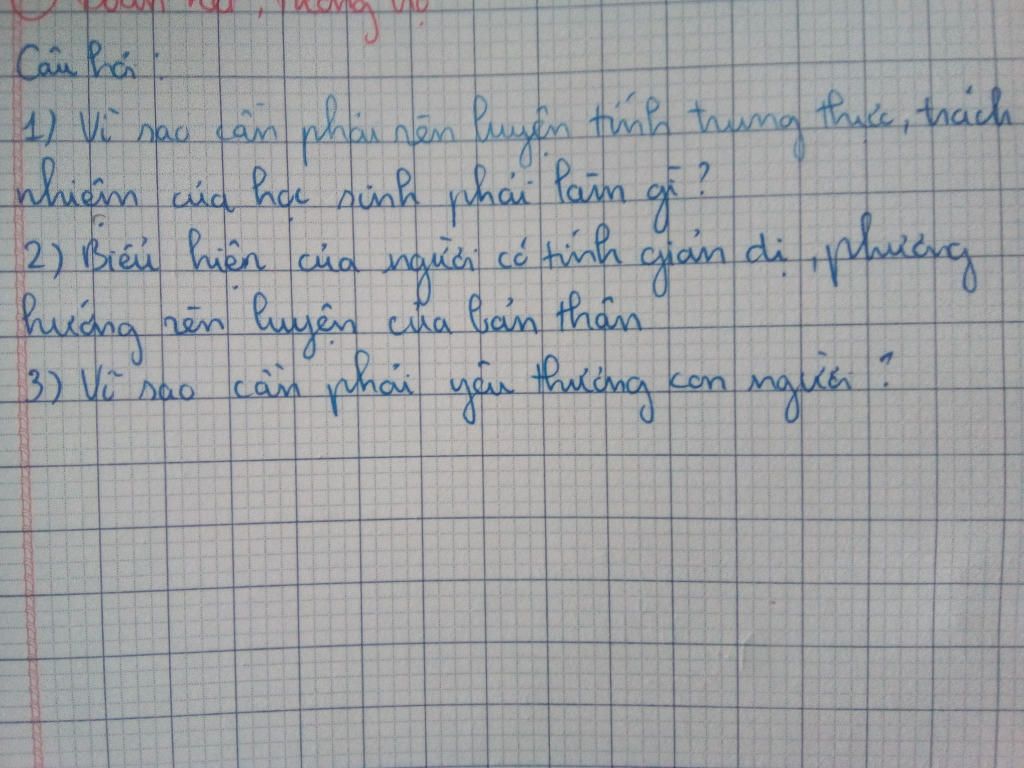 Đoàn kết, tương trợ
Câu hỏi :
1) Vì sao cần phải rèn luyện tính trung thực, trách
nhiệm của học sinh phải làm gì ?
2) Biểu hiện của người có tính giản dị, phương
hướng rèn luyện của bản thân
3) Vì sao cần phải yêu thương con người ?